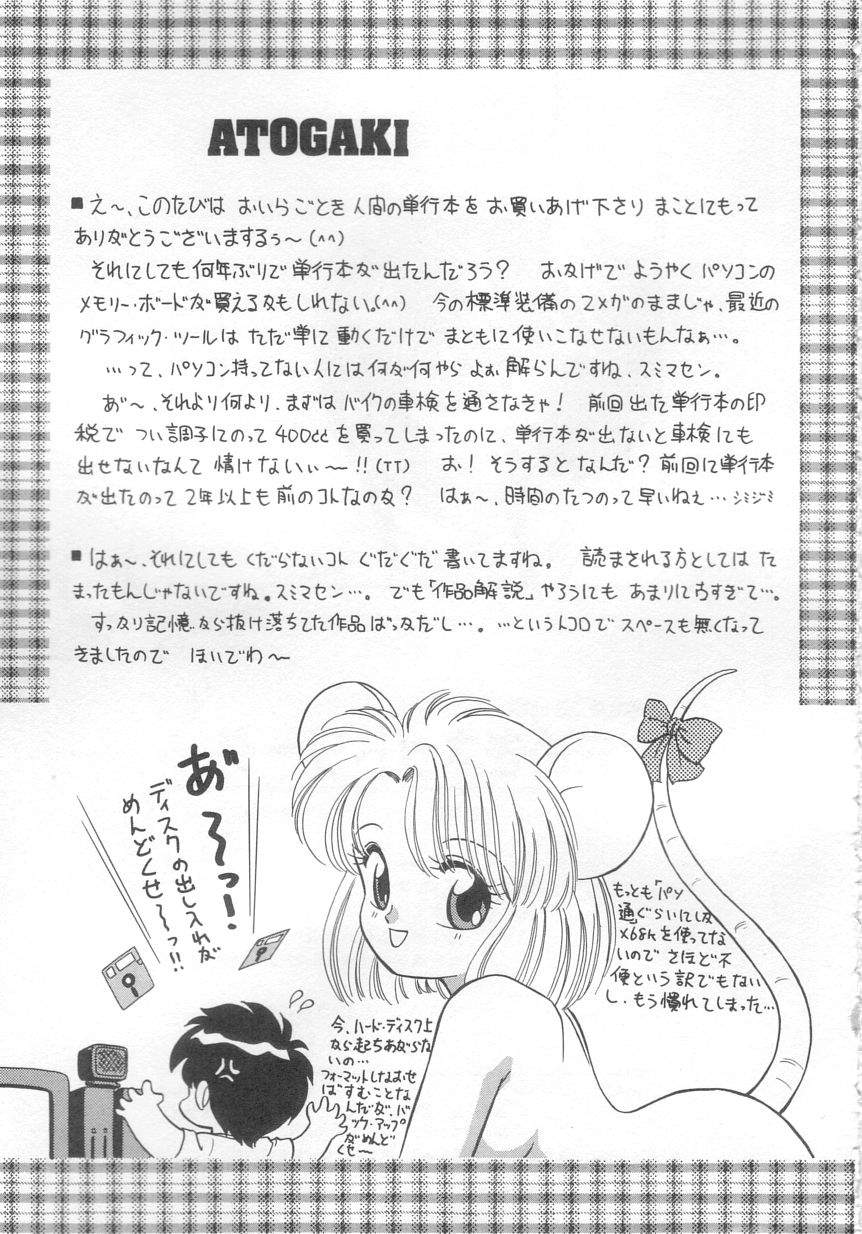 ATOGAKI
■え〜、このたびは おいらごとき 人間の単行本を お買いあげ下さり まことにもって
ありがとうございまするぅ〜(^^)
それにしても何年ぶりで 単行本が出たんだろう？ おかげで ようやく パソコンの
メモリー・ボードが買えるかもしれない。(^^) 今の標準装備の2メガのままじゃ、最近の
グラフィック・ツールは ただ単に 動くだけで まともに使いこなせないもんなぁ…。
…って、パソコン持ってない人には何が何やら よぉ 解らんですね、スミマセン。
あ゛〜、それより何より、まずは バイクの車検を通さなきゃ！ 前回出た単行本の印
税で つい調子にのって 400ccを買ってしまったのに、単行本が出ないと車検にも
出せないなんて 情けないぃ〜!!(TT) お！そうすると なんだ？前回に単行本
が出たのって 2年以上も 前のコトなのか？ はぁ〜、時間のたつのって 早いねぇ…シミジミ
■はぁ〜、それにしても くだらないコト ぐだぐだ 書いてますね。 読まされる方としては た
まったもんじゃないですね。スミマセン…。 でも「作品解説」やろうにも あまりに古すぎて…。
すっかり記憶から抜け落ちてた作品ばっかだし…。…というトコロで スペースも無くなって
きましたので ほいでわ〜
あ゛〜っ！
ディスクの出し入れが
めんどくせ〜っ!!
もっとも「パソ
通」ぐらいにしか
X68kを使ってな
いので さほど不
便という訳でもない
し、もう慣れてしまった…
今、ハード・ディスク上
から起ちあがらな
いの…
フォーマットしなおせ
ば すむことな
んだが、バ
ック・アップ
がめんど
くせ〜